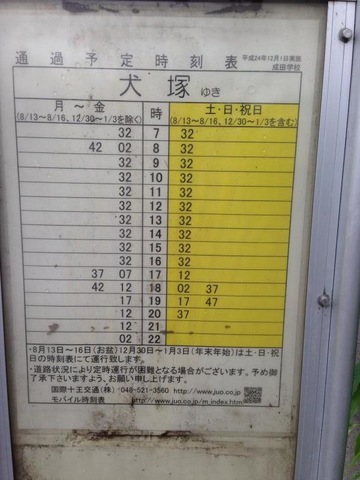 通過予定時刻表
平成24年12月1日実施
成田学校
犬塚 ゆき
月～金 時 土・日・祝日
(8/13～8/16、12/30～1/3を除く) (8/13～8/16、12/30～1/3を含む)
32 7 32
42 02 8 32
32 9 32
32 10 32
32 11 32
32 12 32
32 13 32
32 14 32
32 15 32
32 16 32
37 07 17 12
42 12 18 02 37
17 19 17 47
32 20 37
12 21
02 22
・8月13日～16日(お盆)12月30日～1月3日(年末年始)は土・日・祝
日の時刻表にて運行致します。
・道路状況により定時運行が困難となる場合がございます。予め御
了承下さいますよう、お願い申し上げます。
国際十王交通(株) 048-521-3560 http://www.juo.co.jp
モバイル時刻表 http://www.juo.co.jp/m_index.htm